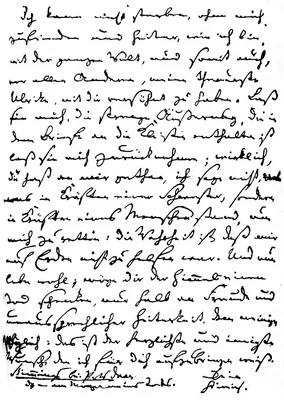 Ich kann nicht sterben, ohne mich,
zufrieden und heiter, wie ich bin,
mit der ganzen Welt, und somit auch,
vor allen Anderen, meine theuerste
Ulrike, mit dir versöhnt zu haben. Laß
sie mich, die strenge Äußerung, die in
dem Briefe an die Kleisten enthalten ist
laß sie mich zurücknehmen; wirklich,
du hast an mir gethan, ich sage nicht, was
in Kräften einer Schwester, sondern
in Kräften eines Menschen stand, um
mich zu retten: die Wahrheit ist, daß mir
auf Erden nicht zu helfen war. Und nun
lebe wohl; möge dir der Himmel einen
Tod schenken, nur halb an Freude und
unaussprechlicher Heiterkeit, dem meinigen
gleich: das ist der herzlichste und innigste
Wunsch, den ich für dich aufzubringen weiß.
Stimmings bei Potsdam. Dein
d. – am Morgen meines Todes. Heinrich.